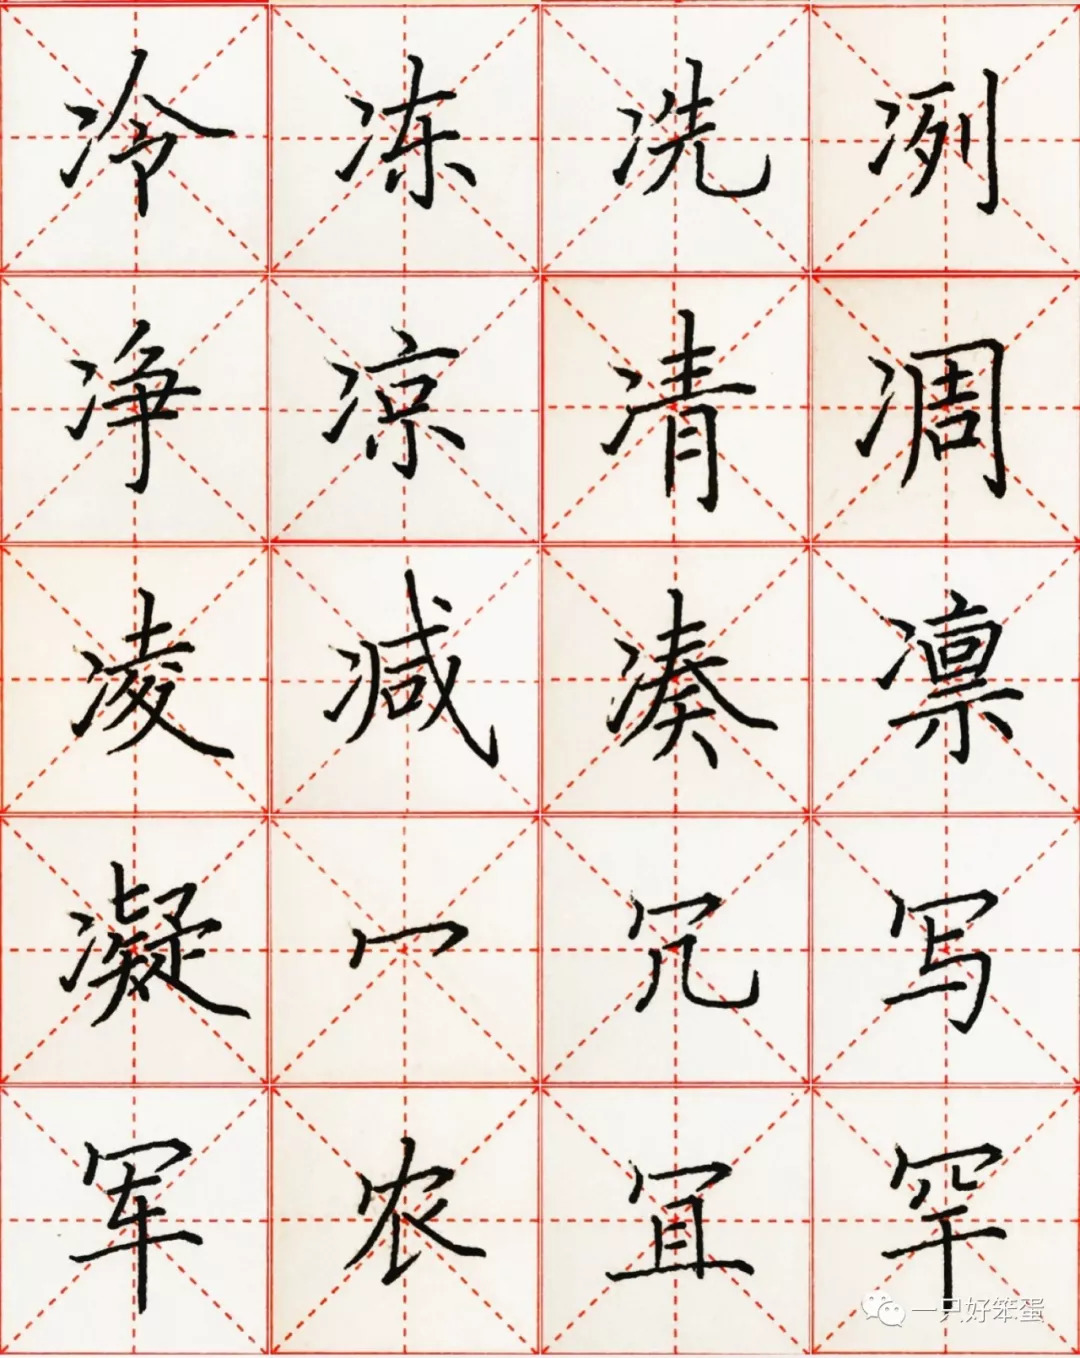 冷冻冼冽
净凉凊凋
凌减凑凛
凝冖冗写
军农冝罕
一只好笨蛋